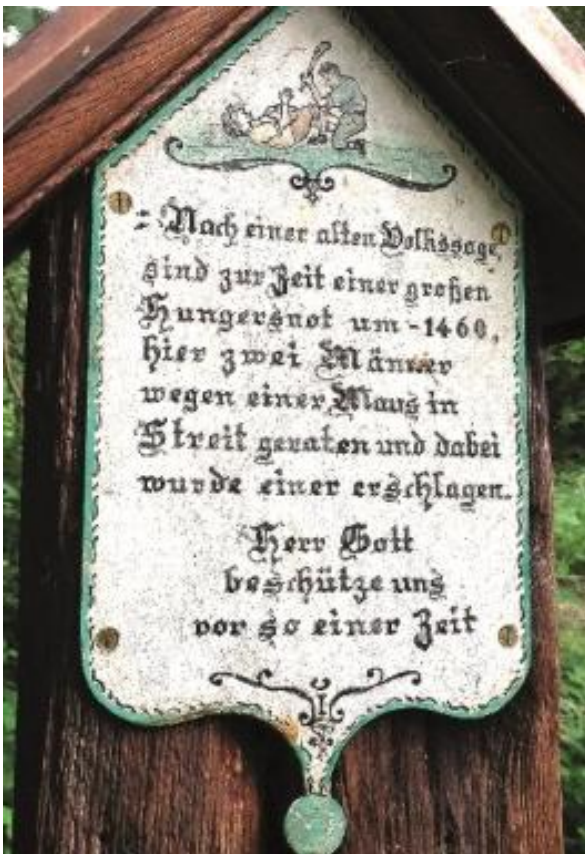 = Nach einer alten Volkssage
sind zur Zeit einer großen
Hungersnot um - 1460,
hier zwei Männer
wegen einer Maus in
Streit geraten und dabei
wurde einer erschlagen.
Herr Gott
beschütze uns
vor so einer Zeit